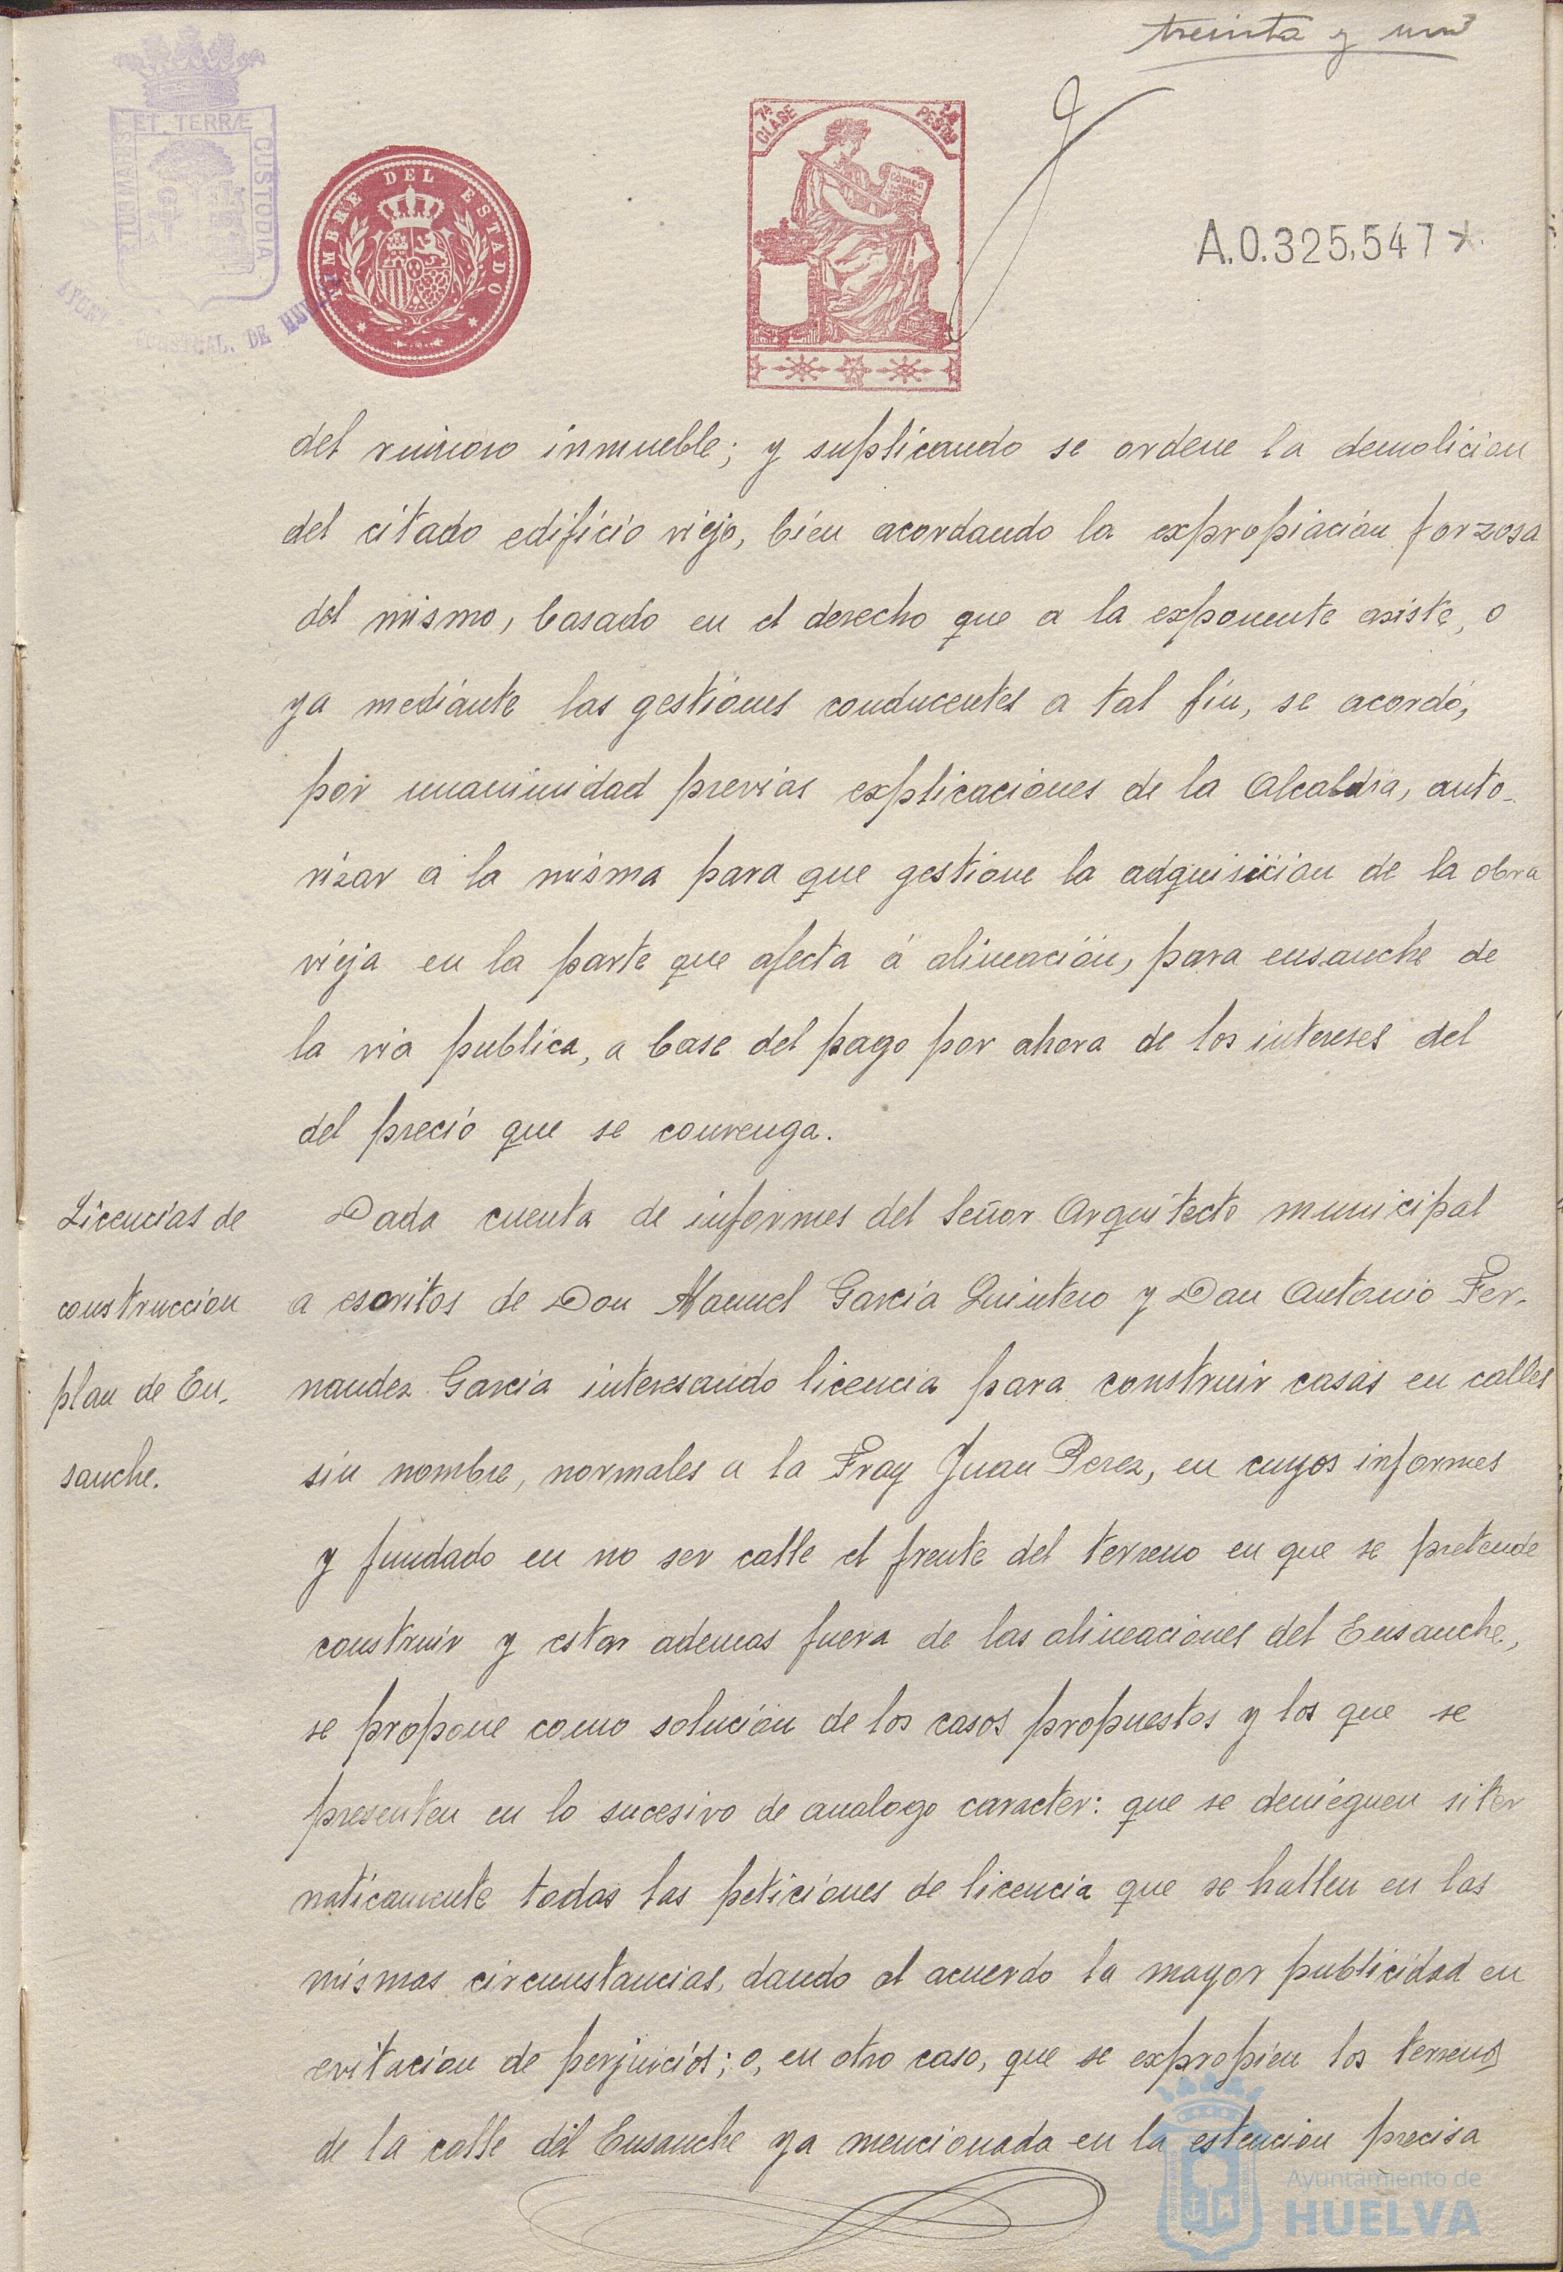 treinta y uno
ET TERRÆ
CUSTODIA
TIMBRE DEL ESTADO
7ª CLASE
PESTAS
A.0.325,547
del ruinoso inmueble; y suplicando se ordene la demolicion
del citado edificio viejo, bien acordando la expropiación forzosa
del mismo, basado en el derecho que a la exponente asiste, o
ya mediante las gestiones conducentes a tal fin, se acordó,
por unanimidad previas explicaciones de la Alcaldia, auto-
rizar a la misma para que gestione la adquisicion de la obra
vieja en la parte que afecta á alineación, para ensanche de
la via publica, a base del pago por ahora de los intereses del
del precio que se convenga.
Licencias de
construccion
plan de En-
sanche.
Dada cuenta de informes del Señor Arquitecto municipal
a escritos de Don Manuel Garcia Quintero y Don Antonio Fer-
nandez Garcia interesando licencia para construir casas en calles
sin nombre, normales a la Fray Juan Perez, en cuyos informes
y fundado en no ser calle el frente del terreno en que se pretende
construir y estar ademas fuera de las alineaciones del Ensanche,
se propone como solución de los casos propuestos y los que se
presenten en lo sucesivo de analogo caracter: que se denieguen siter
naticamente todas las peticiones de licencia que se hallen en las
mismas circunstancias, dando al acuerdo la mayor publicidad en
evitacion de perjuicios; o, en otro caso, que se expropien los terrenos
de la calle del Ensanche ya mencionada en la estencion precisa
Ayuntamiento de
HUELVA